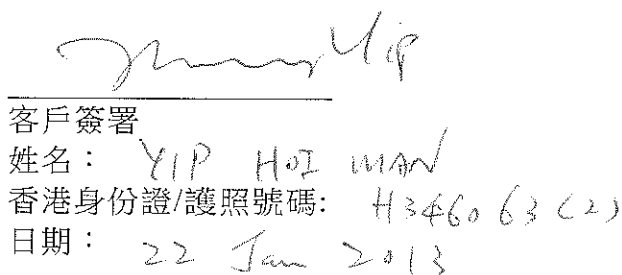 Yip
客戶簽署
姓名： YIP HOI MAN
香港身份證/護照號碼: H346063(2)
日期： 22 Jan 2013